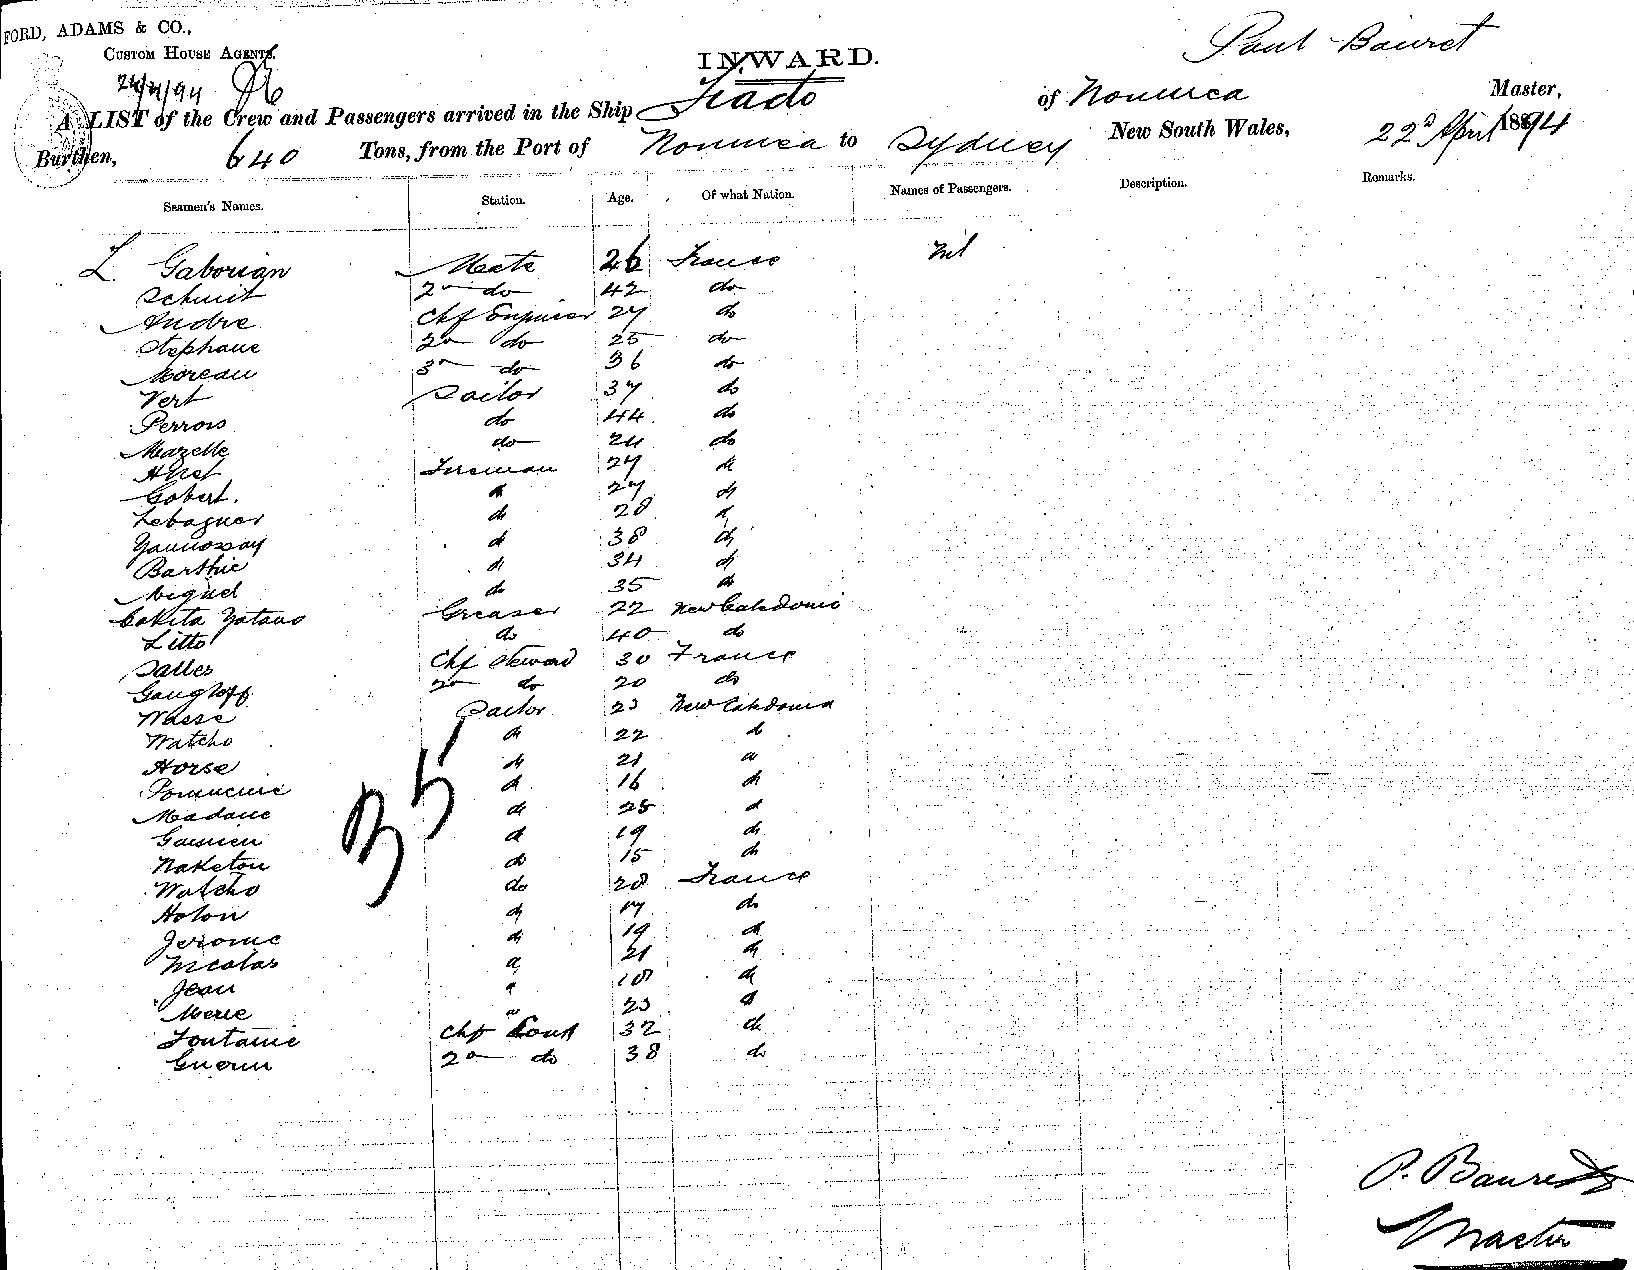 FORD, ADAMS & CO.,
CUSTOM HOUSE AGENTS.
INWARD.
Paul Bauret
24/4/94
A LIST of the Crew and Passengers arrived in the Ship Tiado of Noumea Master,
Burthen, 640 Tons, from the Port of Noumea to Sydney New South Wales, 22d April 1894
Seamen's Names. Station. Age. Of what Nation. Names of Passengers. Description. Remarks.
L. Gaborian Mate 26 France Nil
Schmit 2nd do 42 do
Andre Chf Engineer 27 do
Stephane 2nd do 25 do
Moreau 3rd do 36 do
Vert Sailor 37 do
Perrois do 44 do
Mazelle do 24 do
Fireman 27 do
Gobert. do 27 do
do 28 do
do 38 do
Barthie do 34 do
Miguel do 35 do
Greaser 22 New Caledonia
Litto do 40 do
Salles Chf Steward 30 France
Gangloff 2nd do 20 do
Wasse Sailor 23 New Caledonia
Watcho do 22 do
Horse do 21 do
do 16 do
Madane do 25 do
do 19 do
Naketou do 15 do
Watcho do 28 France
Holon do 17 do
Jerome do 19 do
Nicolas do 21 do
Jean " 18 do
Merle " 23 do
Fontaine Chf Cook 32 do
Guerin 2nd do 38 do
35
P. Bauret
Master